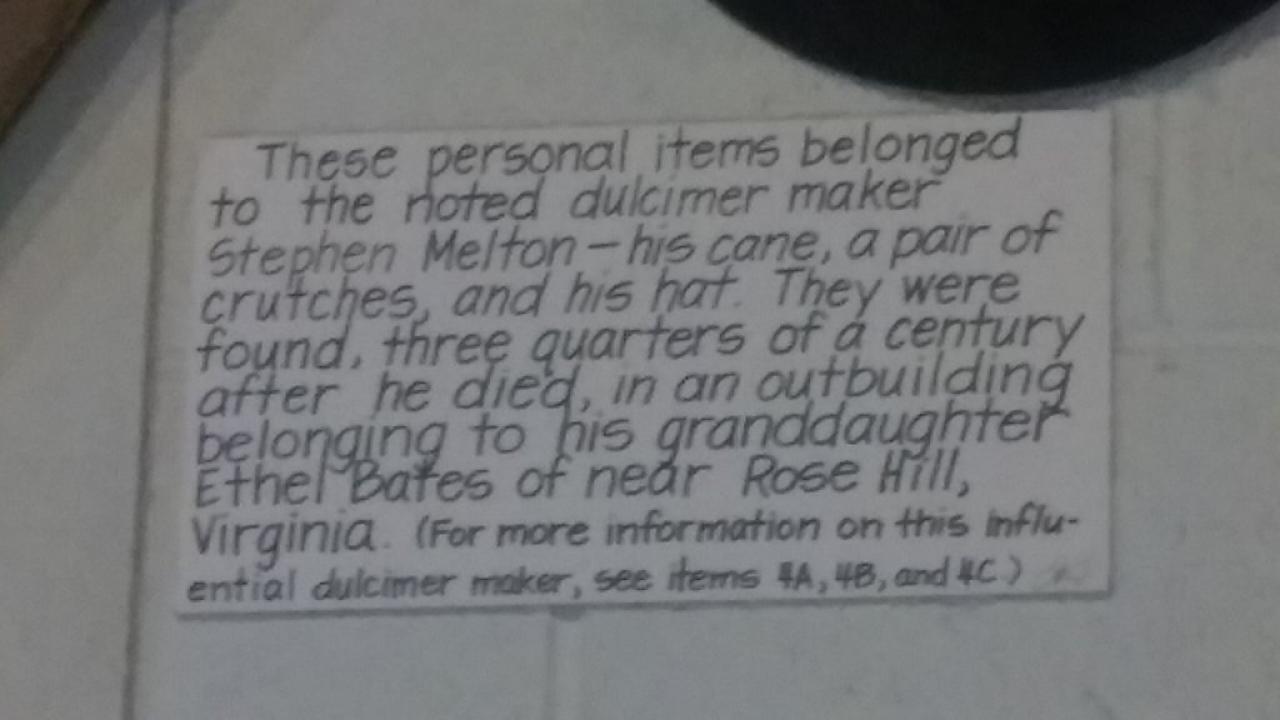 These personal items belonged
to the noted dulcimer maker
Stephen Melton – his cane, a pair of
crutches, and his hat. They were
found, three quarters of a century
after he died, in an outbuilding
belonging to his granddaughter
Ethel Bates of near Rose Hill,
Virginia. (For more information on this influ-
ential dulcimer maker, see items 4A, 4B, and 4C)